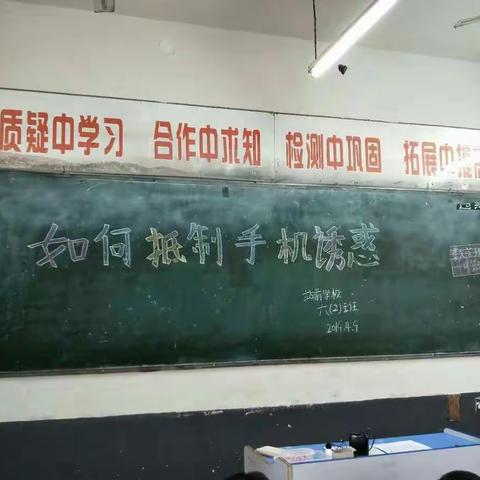 质疑中学习 合作中求知 检测中巩固 拓展中提高
如何抵制手机诱惑
站前学校
六(2)班
2019.4.9